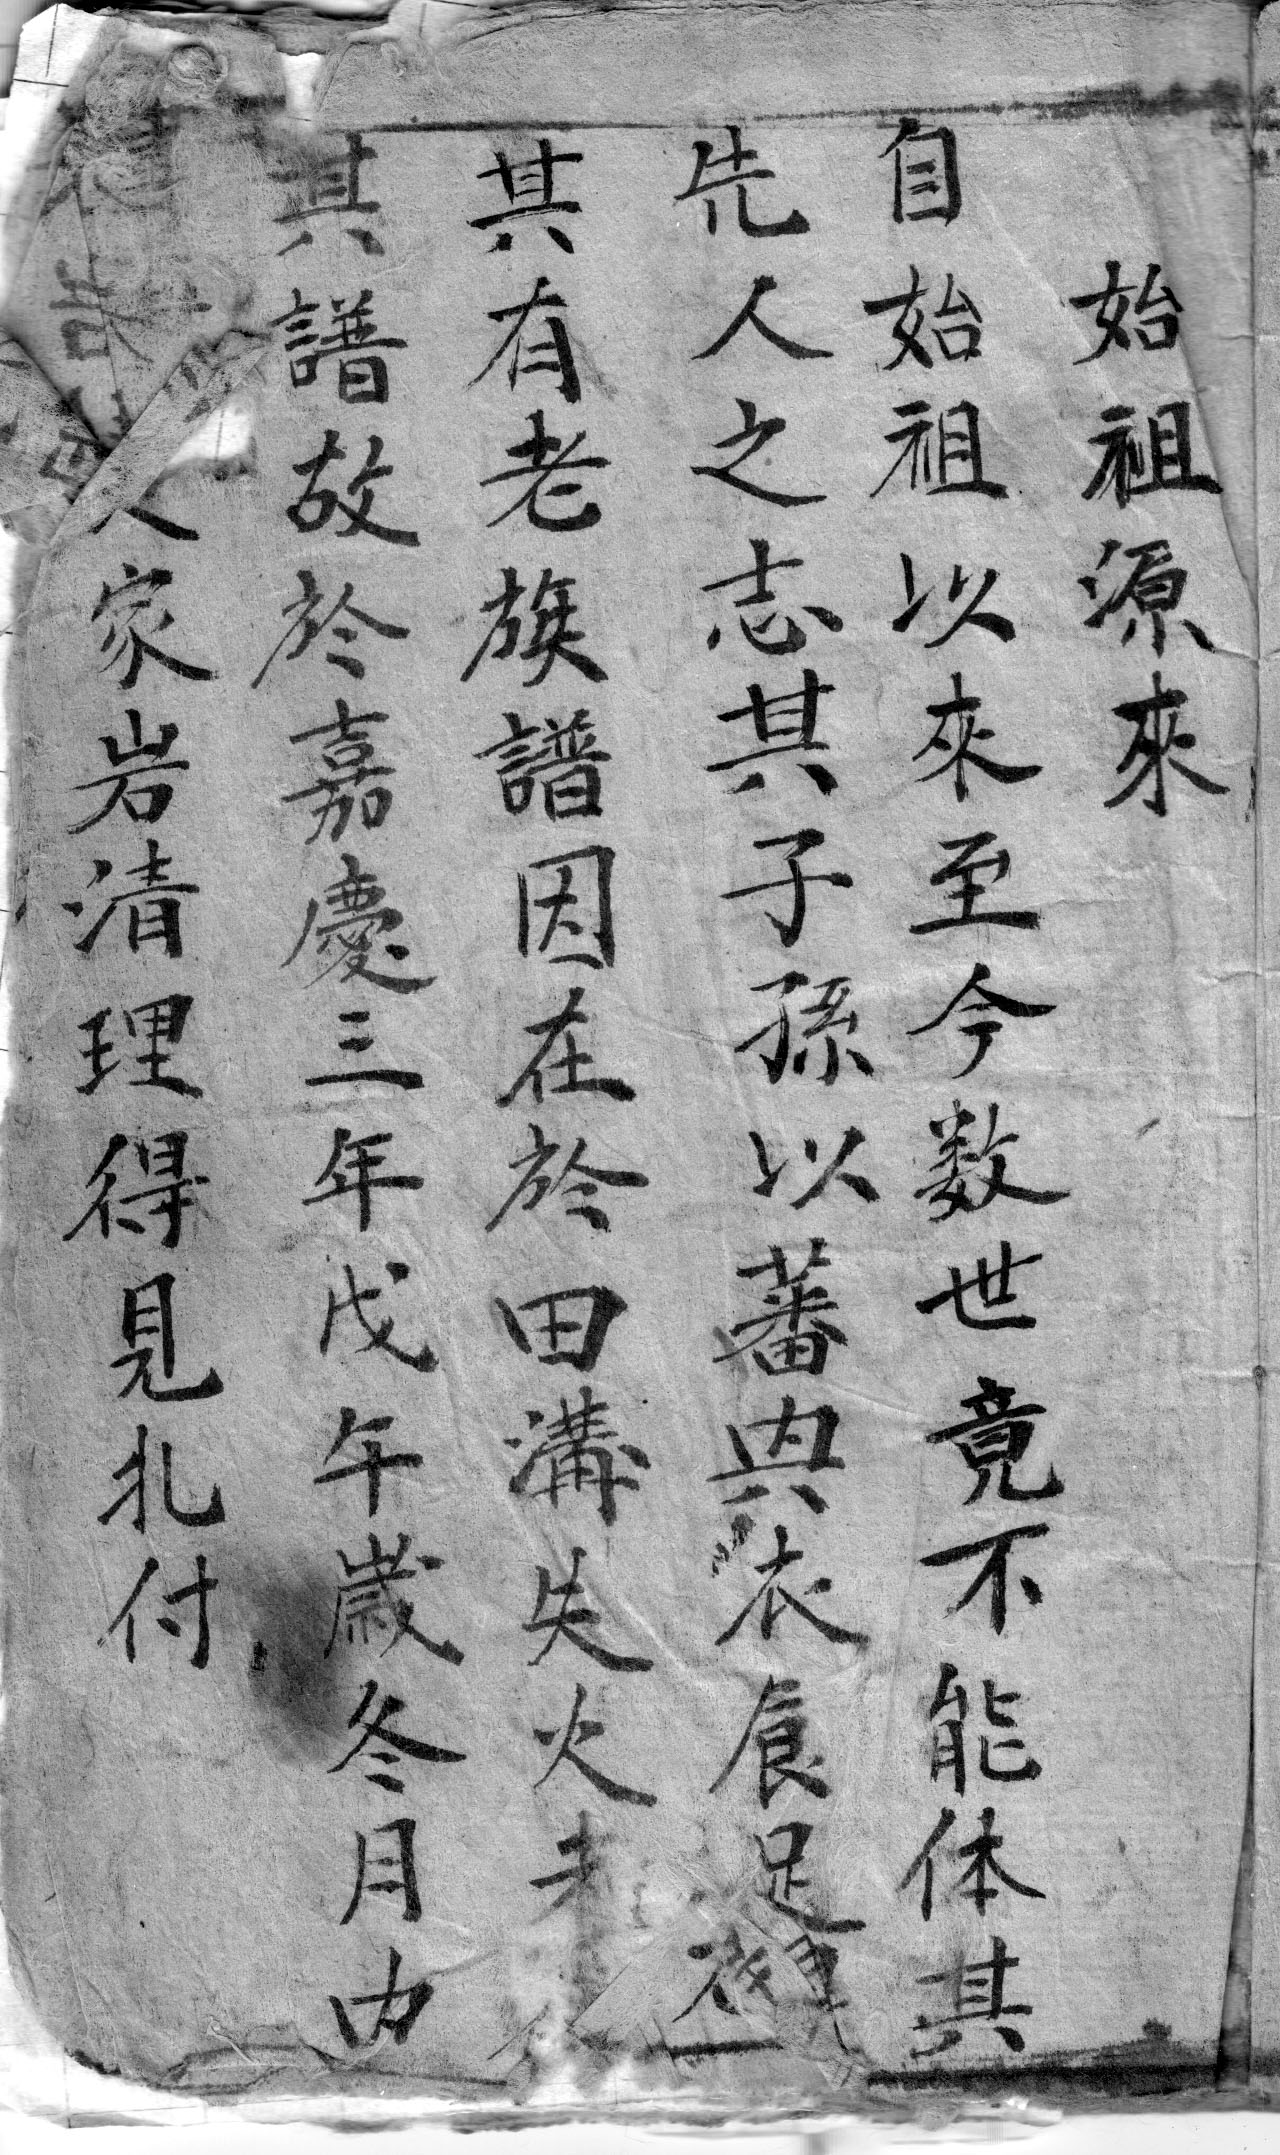 始祖源來
自始祖以來至今数世竟不能体其
先人之志其子孫以蕃與衣食足
其有老族譜因在於田溝失火老
其譜故於嘉慶三年戊午歲冬月内
人家岩清理得見札付